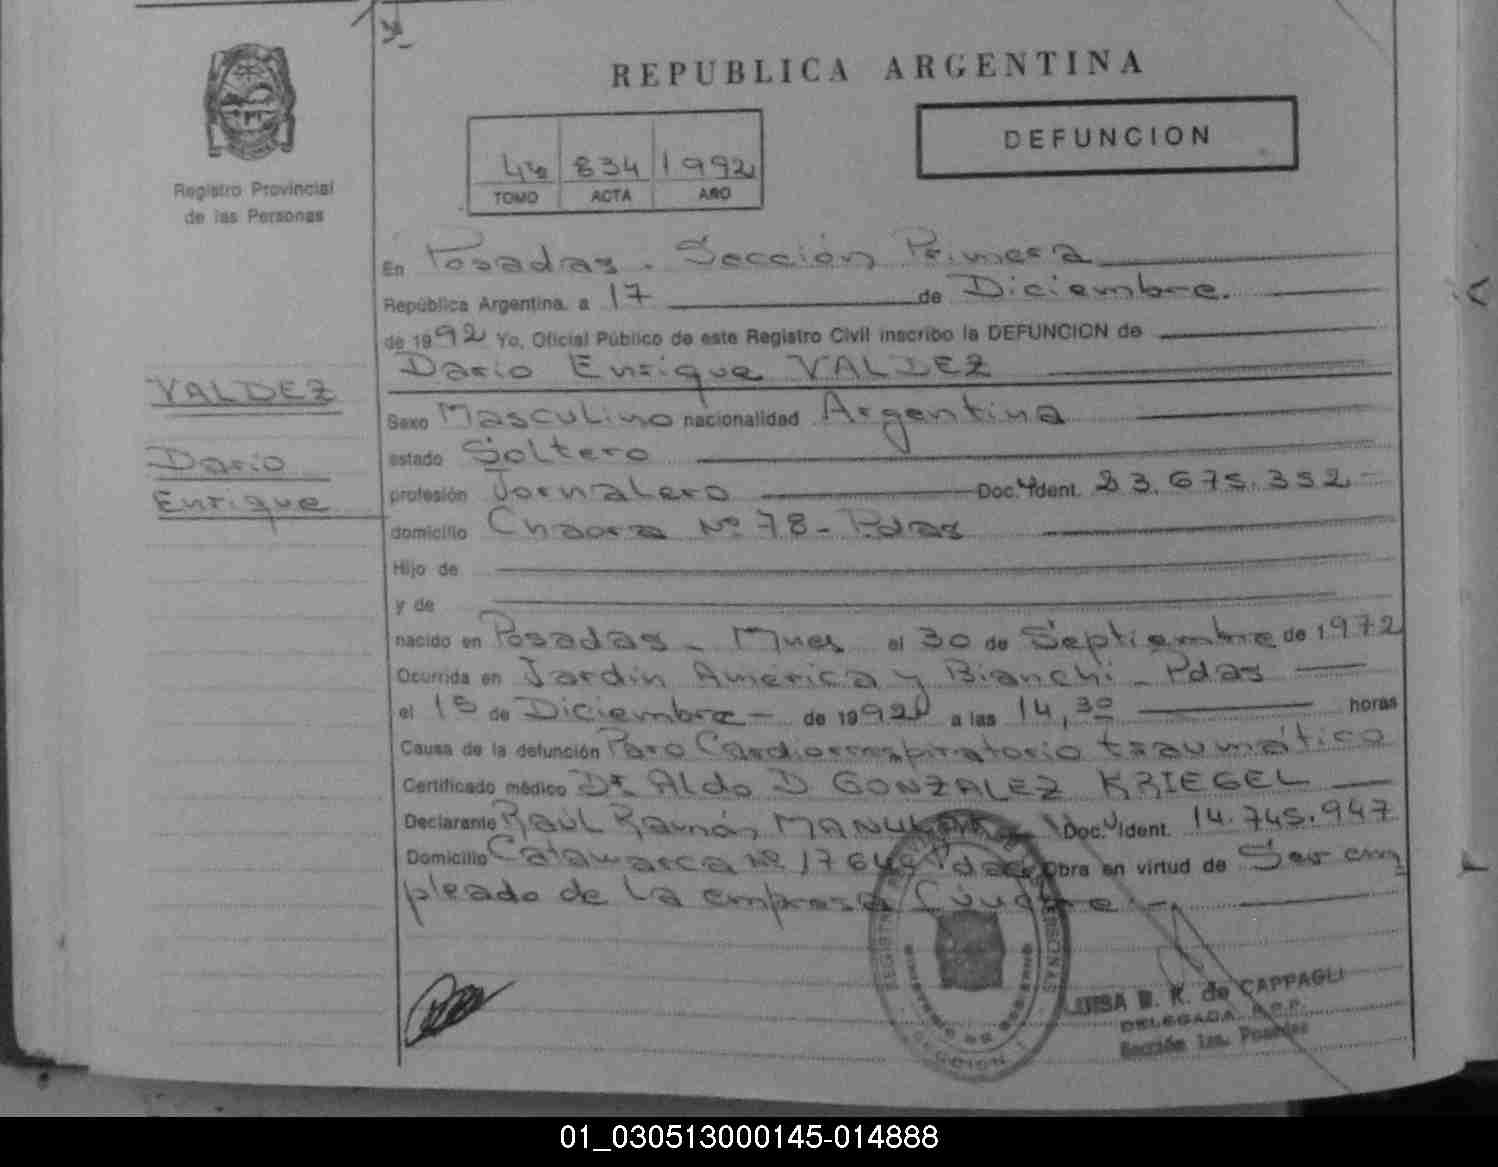 REPUBLICA ARGENTINA
DEFUNCION
834 1992
TOMO ACTA AÑO
Registro Provincial
de las Personas
En Posadas. Sección Primera
República Argentina, a 17 de Diciembre.
de 1992 Yo, Oficial Público de este Registro Civil inscribo la DEFUNCION de
Dario Enrique VALDEZ
VALDEZ
Dario
Enrique
Sexo Masculino nacionalidad Argentina
estado Soltero
profesión Jornalero Doc. Ident. 23.675.352
domicilio Chacra Nº 78 - Pdas
Hijo de
y de
nacido en Posadas - Mnes el 30 de Septiembre de 1972
Ocurrida en Jardín América y Bianchi - Pdas
el 15 de Diciembre - de 1992 a las 14,30 horas
Causa de la defunción Paro Cardiorrespiratorio traumático
Certificado médico Dr. Aldo D GONZALEZ KRIEGEL
Declarante Raúl Ramón Doc. Ident. 14.745.947
Domicilio Catamarca Nº Pdas Obra en virtud de Ser em
pleado de la empresa
LUISA B. K. de CAPPAGLI
DELEGADA R.P.P.
Sección 1ra. Posadas
01_030513000145-014888